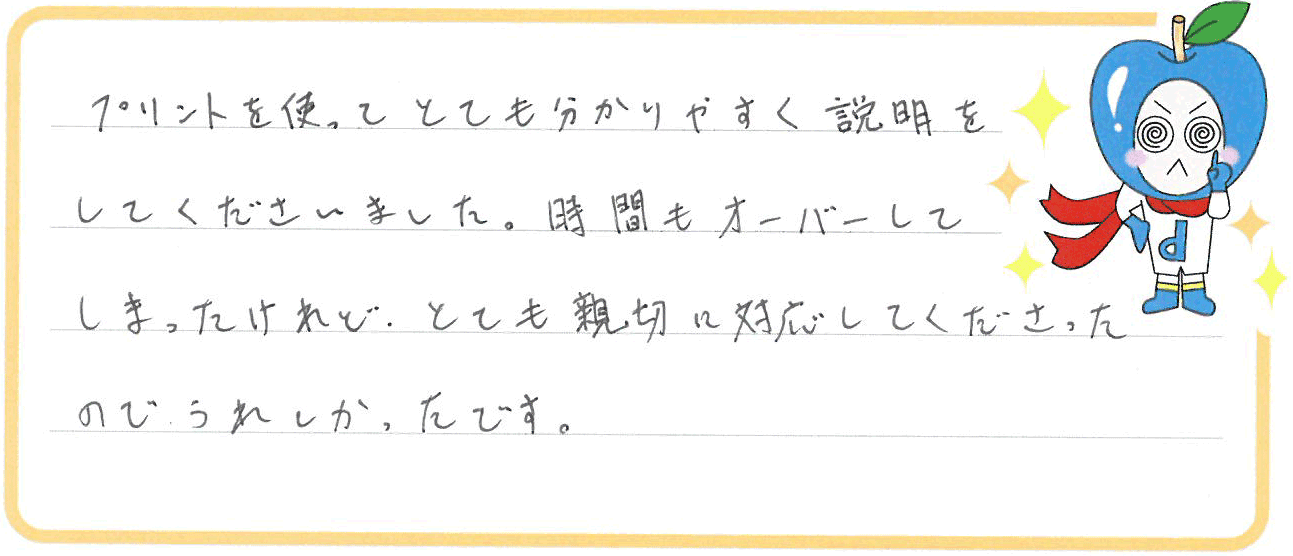 プリントを使ってとても分かりやすく説明を
してくださいました。時間もオーバーして
しまったけれど、とても親切に対応してくださった
ので、うれしかったです。
d